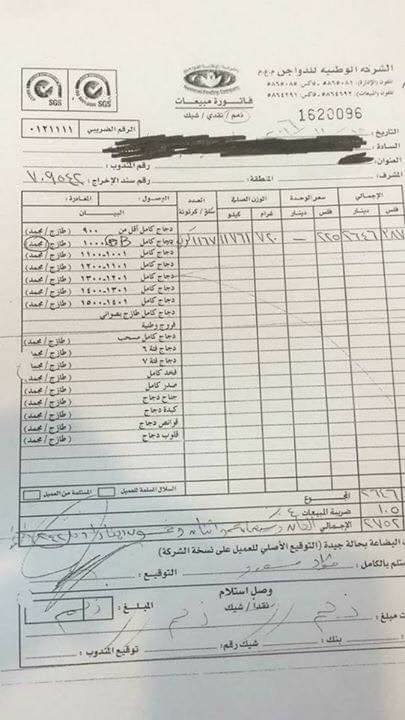 الشركة الوطنية للدواجن م.ع.م
National Poultry Company
SGS
SGS
تلفون (الإدارة): ٥٨٦٥٠٨٥ فاكس: ٥٨٦٥٠٨٥
تلفون (المبيعات): ٥٨٦٤٦٩٢ فاكس: ٥٨٦٤٢٩١
فاتورة مبيعات
ذمم / نقدي / شيك
1620096
الرقم الضريبي ٠١٢١١١١
التاريخ:
السادة:
العنوان: رقم المندوب:
المشرف: المنطقة: رقم سند الإخراج: ٧٠٩٥٤٢
الإجمالي سعر الوحدة الوزن الصافي العدد الوصول: المغادرة:
فلس دينار فلس دينار غرام كيلو كرتونة البيــــان
دجاج كامل أقل من ٩٠٠ (طازج / مجمد)
٢٨٧ ٢٦٤٦ ٢٢٥ — ٧٢٠ ١١٧٦١ ١١٦٧ B ١٠٠٠ (طازج / مجمد)
دجاج كامل ١٠٠١-١١٠٠ (طازج / مجمد)
دجاج كامل ١١٠١-١٢٠٠ (طازج / مجمد)
دجاج كامل ١٢٠١-١٣٠٠ (طازج / مجمد)
دجاج كامل ١٣٠١-١٤٠٠ (طازج / مجمد)
دجاج كامل ١٤٠١-١٥٠٠ (طازج / مجمد)
دجاج كامل طازج بصواني
فروج وطنية
دجاج كامل مسحب (طازج / مجمد)
دجاج فئة ٦ (طازج / مجمد)
دجاج فئة ٧ (طازج / مجمد)
فخد كامل (طازج / مجمد)
صدر كامل (طازج / مجمد)
جناح دجاج (طازج / مجمد)
كبدة دجاج (طازج / مجمد)
قوانص دجاج (طازج / مجمد)
قلوب دجاج (طازج / مجمد)
السلال المسلمة للعميل المستلمة من العميل
٢٦٤٦ المجموع
١٠٥ ضريبة المبيعات ٤٪
٢٧٥٢ الإجمالي
البضاعة بحالة جيدة (التوقيع الأصلي للعميل على نسخة الشركة)
ستلم بالكامل: التوقيع:
وصل استلام
نقداً / شيك المبلغ: ذمم
مبلغ: ذمم ذمم
بنك: شيك رقم: توقيع المندوب: